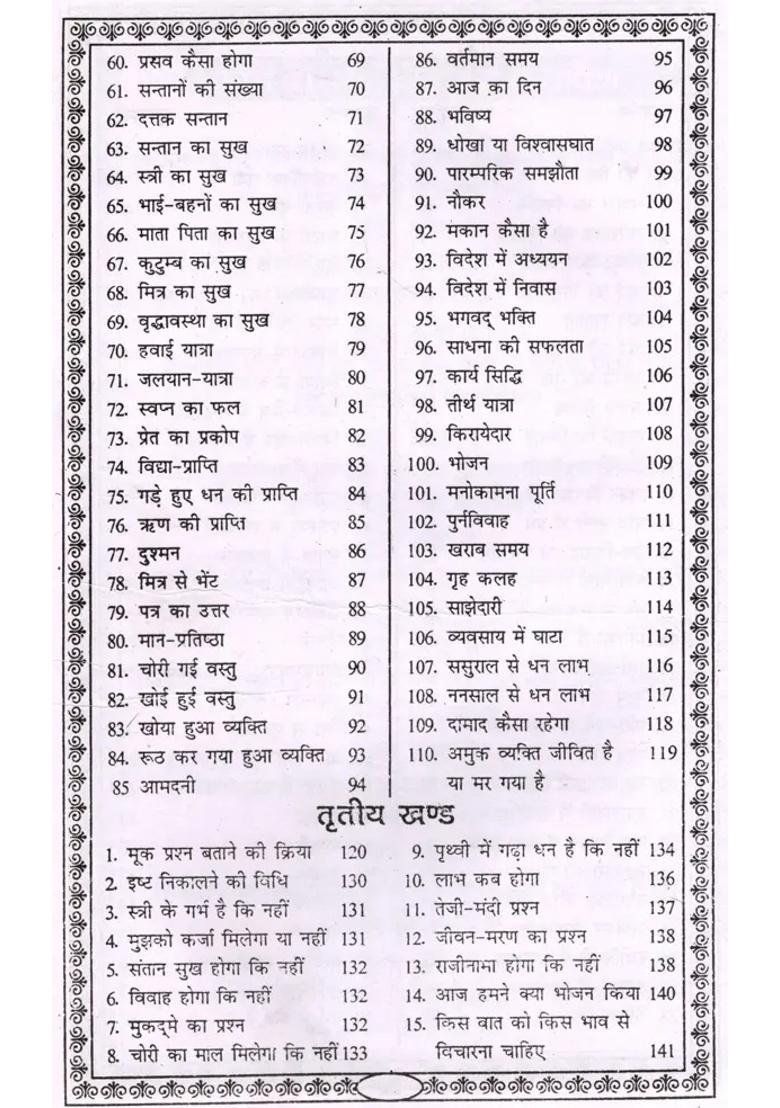 60. प्रसव कैसा होगा 69
61. सन्तानों की संख्या 70
62. दत्तक सन्तान 71
63. सन्तान का सुख 72
64. स्त्री का सुख 73
65. भाई-बहनों का सुख 74
66. माता पिता का सुख 75
67. कुटुम्ब का सुख 76
68. मित्र का सुख 77
69. वृद्धावस्था का सुख 78
70. हवाई यात्रा 79
71. जलयान-यात्रा 80
72. स्वप्न का फल 81
73. प्रेत का प्रकोप 82
74. विद्या-प्राप्ति 83
75. गड़े हुए धन की प्राप्ति 84
76. ऋण की प्राप्ति 85
77. दुश्मन 86
78. मित्र से भेंट 87
79. पत्र का उत्तर 88
80. मान-प्रतिष्ठा 89
81. चोरी गई वस्तु 90
82. खोई हुई वस्तु 91
83. खोया हुआ व्यक्ति 92
84. रूठ कर गया हुआ व्यक्ति 93
85 आमदनी 94
86. वर्तमान समय 95
87. आज का दिन 96
88. भविष्य 97
89. धोखा या विश्वासघात 98
90. पारम्परिक समझौता 99
91. नौकर 100
92. मकान कैसा है 101
93. विदेश में अध्ययन 102
94. विदेश में निवास 103
95. भगवद् भक्ति 104
96. साधना की सफलता 105
97. कार्य सिद्धि 106
98. तीर्थ यात्रा 107
99. किरायेदार 108
100. भोजन 109
101. मनोकामना पूर्ति 110
102. पुर्नविवाह 111
103. खराब समय 112
104. गृह कलह 113
105. साझेदारी 114
106. व्यवसाय में घाटा 115
107. ससुराल से धन लाभ 116
108. ननसाल से धन लाभ 117
109. दामाद कैसा रहेगा 118
110. अमुक व्यक्ति जीवित है 119
या मर गया है
तृतीय खण्ड
1. मूक प्रश्न बताने की क्रिया 120
2. इष्ट निकालने की विधि 130
3. स्त्री के गर्भ है कि नहीं 131
4. मुझको कर्जा मिलेगा या नहीं 131
5. संतान सुख होगा कि नहीं 132
6. विवाह होगा कि नहीं 132
7. मुकद्मे का प्रश्न 132
8. चोरी का माल मिलेगा कि नहीं 133
9. पृथ्वी में गढ़ा धन है कि नहीं 134
10. लाभ कब होगा 136
11. तेजी-मंदी प्रश्न 137
12. जीवन-मरण का प्रश्न 138
13. राजीनामा होगा कि नहीं 138
14. आज हमने क्या भोजन किया 140
15. किस बात को किस भाव से
विचारना चाहिए 141